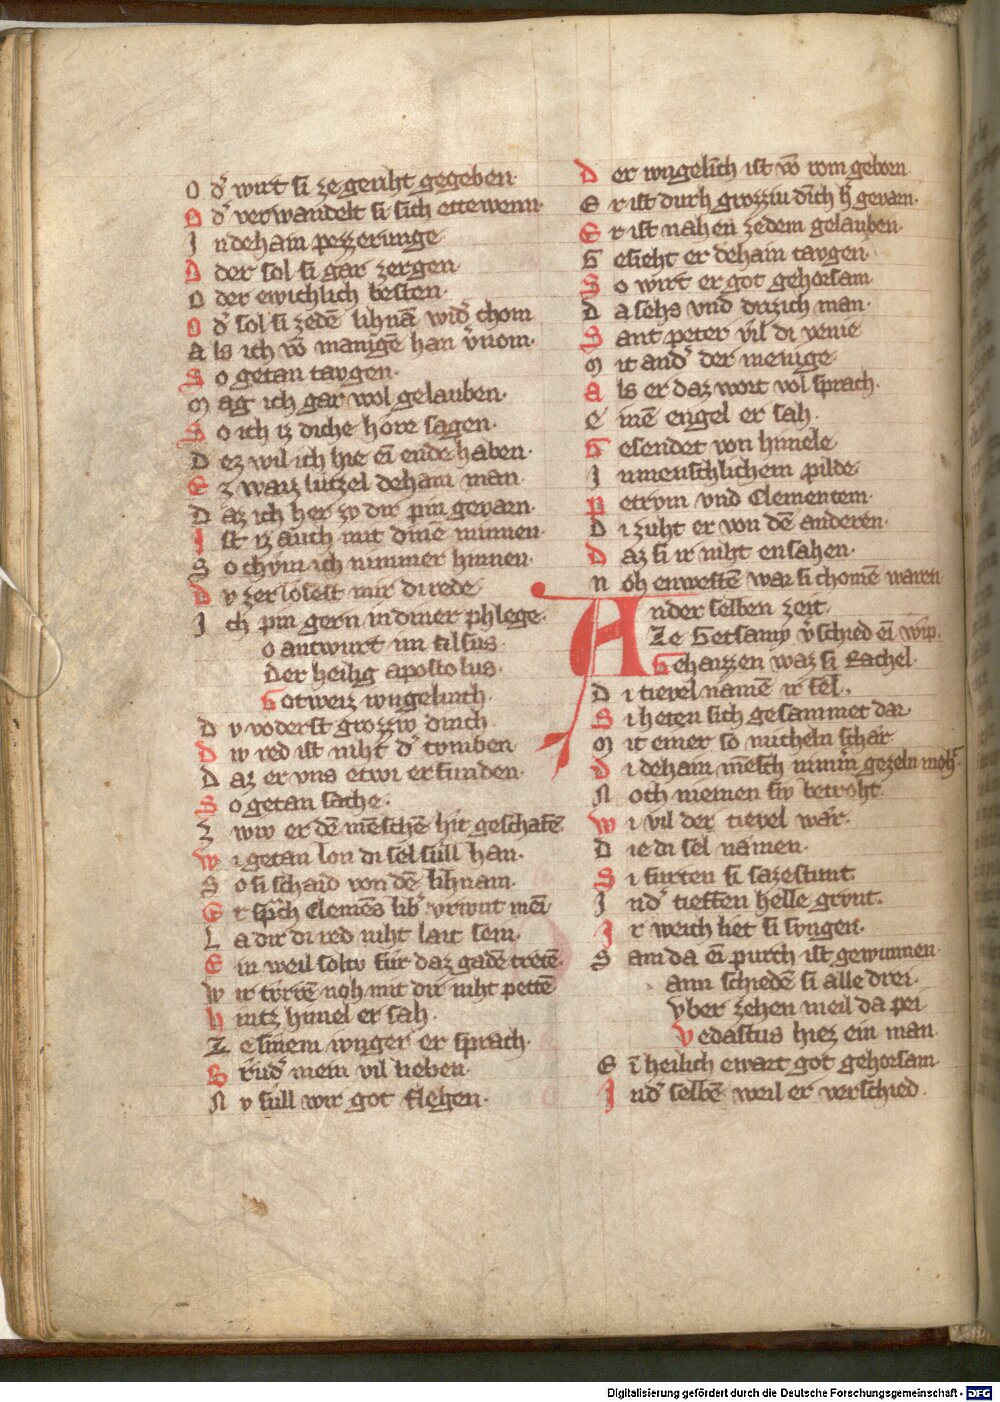 O d᷎ wirt si ze geriht gegeben·
O d᷎ verwandelt si sich ettewenn·
I n dehain pezzerunge
O der sol si gar zergen
O der ewichlich besten·
O d᷎ sol si zedē lihnā wid᷎ chom
A ls ich vō manigē han v᷎nom·
S o getan taugen·
M ag ich gar wol gelauben·
S o ich iz diche hore sagen·
D ez wil ich hie ei̅ ende haben·
E z waiz lutzel dehain man·
D az ich her zv dir pin gevarn·
I st iz auch mit dinē minnen·
S o chvm ich nimmer hinnen·
D v zerlosest mir di rede
I ch pin gern in diner phlege·
o antwurt im filsus·
Der heilig apostolus·
G otweiz wngelinch·
D v voderst grozziv dinch
D iv red ist niht d᷎ tvmben
D az er vns etwi erfunden·
S o getan sache·
Z wiv er dē mēschē hit geschafē
W i getan lon di sel sull han·
S o si schaid von dē lihnam·
E r sp᷎ch Clemēs lib᷎ vriunt mei̅
L a dir di red niht lait sein·
E in weil soltv für daz gadē tretē·
W ir tvrrē noh mit dir niht pettē
H intz himel er sah·
Z e sinem ivnger er sprach·
B r᷎vd᷎ mein vil lieben·
N v süll wir got flehen·
D er ivngelich ist vō rom geborn
E r ist durh grozziu dich h᷎ gevarn·
E r ist nahen zedem gelauben·
G esieht er dehain tavgen·
S o wirt er got gehorsam
D a sehs vnd drizich man·
S ant peter viel di venie
M it and᷎ der menige·
A ls er daz wort vol sprach·
E inē engel er sah·
G esendet von himele
I n menschlichem pilde·
P etrvm vnd Clementem·
D i zuht er von dē anderen·
D az si ir niht ensahen·
N oh enwestē war si chomē waren
A nder selben zeit·
Ze Getsamy v᷎schied ei̅ wip·
Gehaizzen waz si Rachel·
D i tievel namē ir sel·
S i heten sich gesammet dar
M it einer so micheln schar
D i dehain mēsch nimm᷎ gezeln moh᷎
N och niemen siv betroht·
W i vil der tievel wár·
D ie di sel námen·
S i furten si sazestunt
I nd᷎ tieffen helle grvnt·
I r weich liet si svngen·
S am da ei̅ purch ist gewunnen·
ann schiedē si alle drei·
Vber zehen meil da pei·
V edastus hiez ein man·
E i̅ heilich ewart got gehorsam·
I nd᷎ selbē weil er verschied·
Digitalisierung gefördert durch die Deutsche Forschungsgemeinschaft - DFG